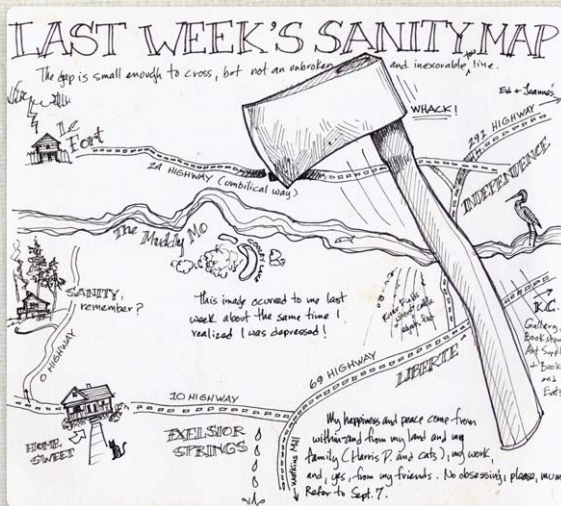 LAST WEEK'S SANITY MAP
The gap is small enough to cross, but not an unbroken and inexorable line.
Ed & Jeanne's
WHACK!
Le
Fort
291 HIGHWAY
24 HIGHWAY (umbilical way)
INDEPENDENCE
The Muddy Mo
COOLEY LAKE
SANITY,
remember?
This image occured to me last
week about the same time I
realized I was depressed!
K.C.
Gallery,
Bookstore
Art Suppl
+ Book
and
Eats
O HIGHWAY
69 HIGHWAY
LIBERTE
10 HIGHWAY
HOME
SWEET
EXELSIOR
SPRINGS
Watkins Mill
My happiness and peace come from
within and from my land and my
family (Harris P. and cats), my work,
and, yes, from my friends. No obsessing, please, mum
Refer to Sept. 7.